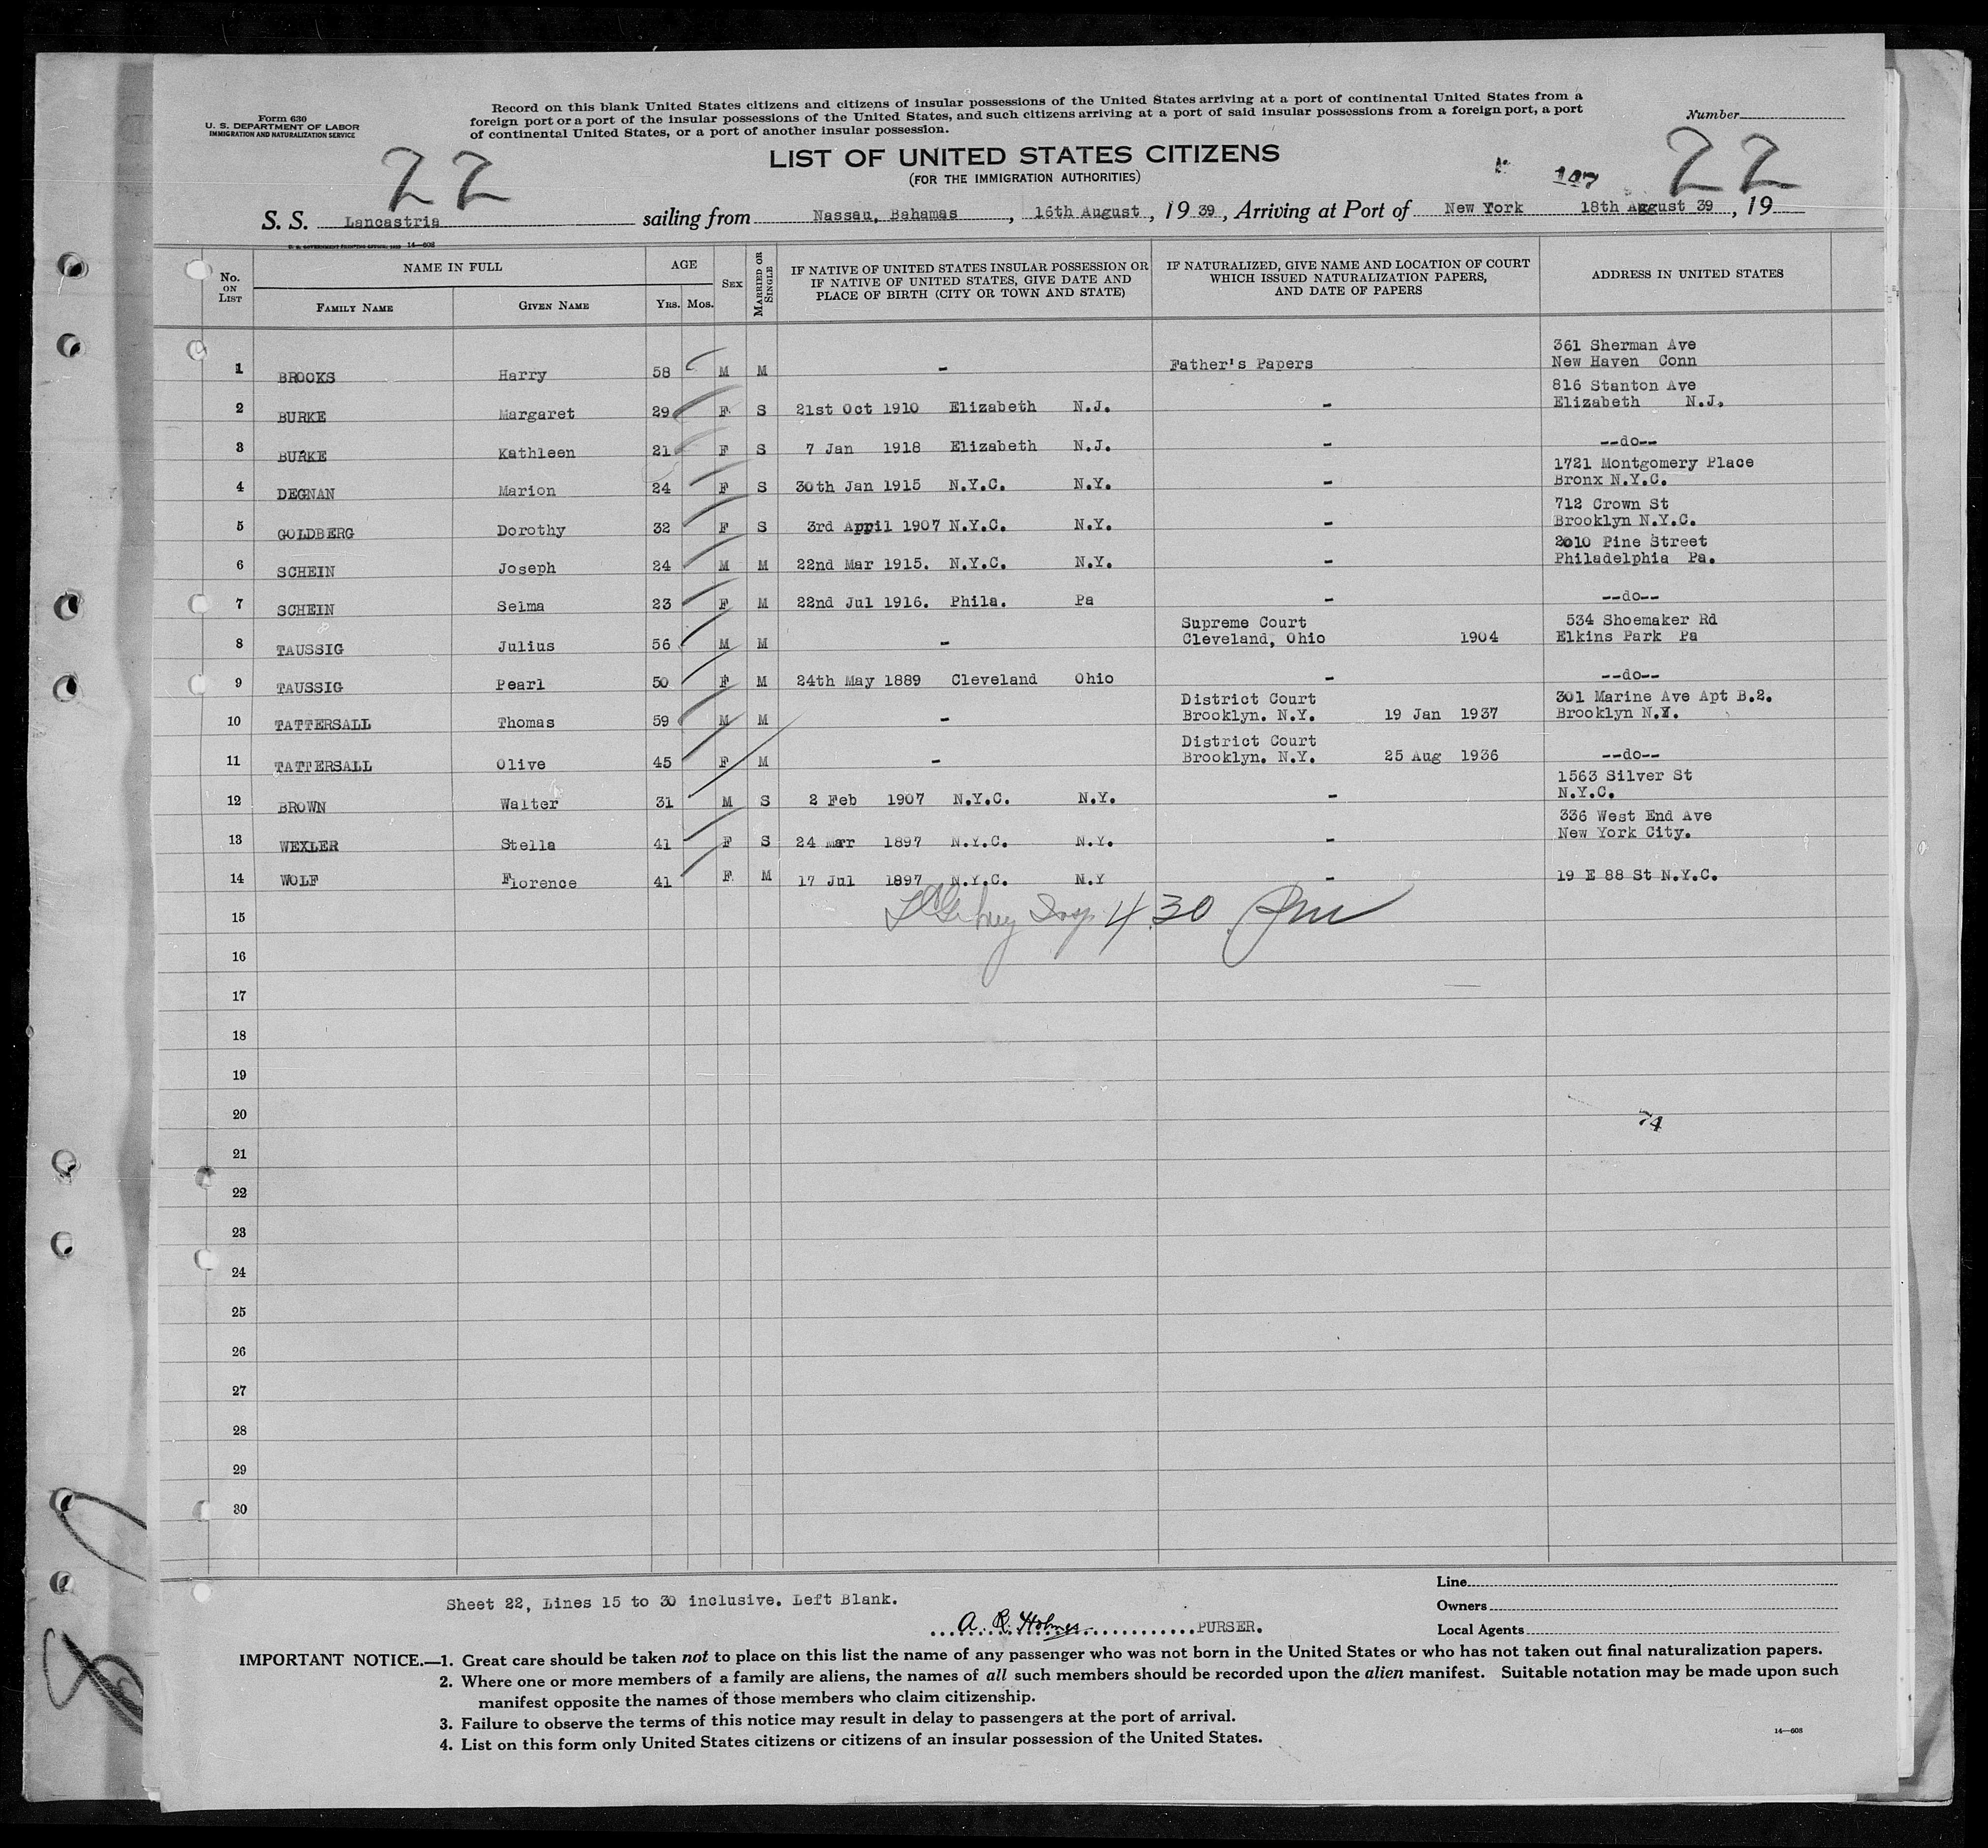 Form 630
U. S. DEPARTMENT OF LABOR
IMMIGRATION AND NATURALIZATION SERVICE
Record on this blank United States citizens and citizens of insular possessions of the United States arriving at a port of continental United States from a
foreign port or a port of the insular possessions of the United States, and such citizens arriving at a port of said insular possessions from a foreign port, a port
of continental United States, or a port of another insular possession.
Number
22
LIST OF UNITED STATES CITIZENS
(FOR THE IMMIGRATION AUTHORITIES)
147
22
S. S. Lancastria sailing from Nassau, Bahamas, 16th August, 1939, Arriving at Port of New York 18th August 39, 19
U. S. GOVERNMENT PRINTING OFFICE 14—608
No. ON LIST
NAME IN FULL
FAMILY NAME
GIVEN NAME
AGE
YRS. MOS.
SEX
MARRIED OR SINGLE
IF NATIVE OF UNITED STATES INSULAR POSSESSION OR
IF NATIVE OF UNITED STATES, GIVE DATE AND
PLACE OF BIRTH (CITY OR TOWN AND STATE)
IF NATURALIZED, GIVE NAME AND LOCATION OF COURT
WHICH ISSUED NATURALIZATION PAPERS,
AND DATE OF PAPERS
ADDRESS IN UNITED STATES
1 BROOKS Harry 58 M M - Father's Papers 361 Sherman Ave
New Haven Conn
2 BURKE Margaret 29 F S 21st Oct 1910 Elizabeth N.J. - 816 Stanton Ave
Elizabeth N.J.
3 BURKE Kathleen 21 F S 7 Jan 1918 Elizabeth N.J. - --do--
4 DEGNAN Marion 24 F S 30th Jan 1915 N.Y.C. N.Y. - 1721 Montgomery Place
Bronx N.Y.C.
5 GOLDBERG Dorothy 32 F S 3rd April 1907 N.Y.C. N.Y. - 712 Crown St
Brooklyn N.Y.C.
6 SCHEIN Joseph 24 M M 22nd Mar 1915. N.Y.C. N.Y. - 2010 Pine Street
Philadelphia Pa.
7 SCHEIN Selma 23 F M 22nd Jul 1916. Phila. Pa - --do--
8 TAUSSIG Julius 56 M M - Supreme Court
Cleveland, Ohio 1904 534 Shoemaker Rd
Elkins Park Pa
9 TAUSSIG Pearl 50 F M 24th May 1889 Cleveland Ohio - --do--
10 TATTERSALL Thomas 59 M M - District Court
Brooklyn. N.Y. 19 Jan 1937 301 Marine Ave Apt B.2.
Brooklyn N.Y.
11 TATTERSALL Olive 45 F M - District Court
Brooklyn. N.Y. 25 Aug 1936 --do--
12 BROWN Walter 31 M S 2 Feb 1907 N.Y.C. N.Y. - 1563 Silver St
N.Y.C.
13 WEXLER Stella 41 F S 24 Mar 1897 N.Y.C. N.Y. - 336 West End Ave
New York City.
14 WOLF Florence 41 F M 17 Jul 1897 N.Y.C. N.Y - 19 E 88 St N.Y.C.
15
4.30 Pm
16
17
18
19
20
74
21
22
23
24
25
26
27
28
29
30
Sheet 22, Lines 15 to 30 inclusive. Left Blank.
A. R. Holmes PURSER.
Line
Owners
Local Agents
IMPORTANT NOTICE.—1. Great care should be taken not to place on this list the name of any passenger who was not born in the United States or who has not taken out final naturalization papers.
2. Where one or more members of a family are aliens, the names of all such members should be recorded upon the alien manifest. Suitable notation may be made upon such
manifest opposite the names of those members who claim citizenship.
3. Failure to observe the terms of this notice may result in delay to passengers at the port of arrival.
4. List on this form only United States citizens or citizens of an insular possession of the United States.
14—608